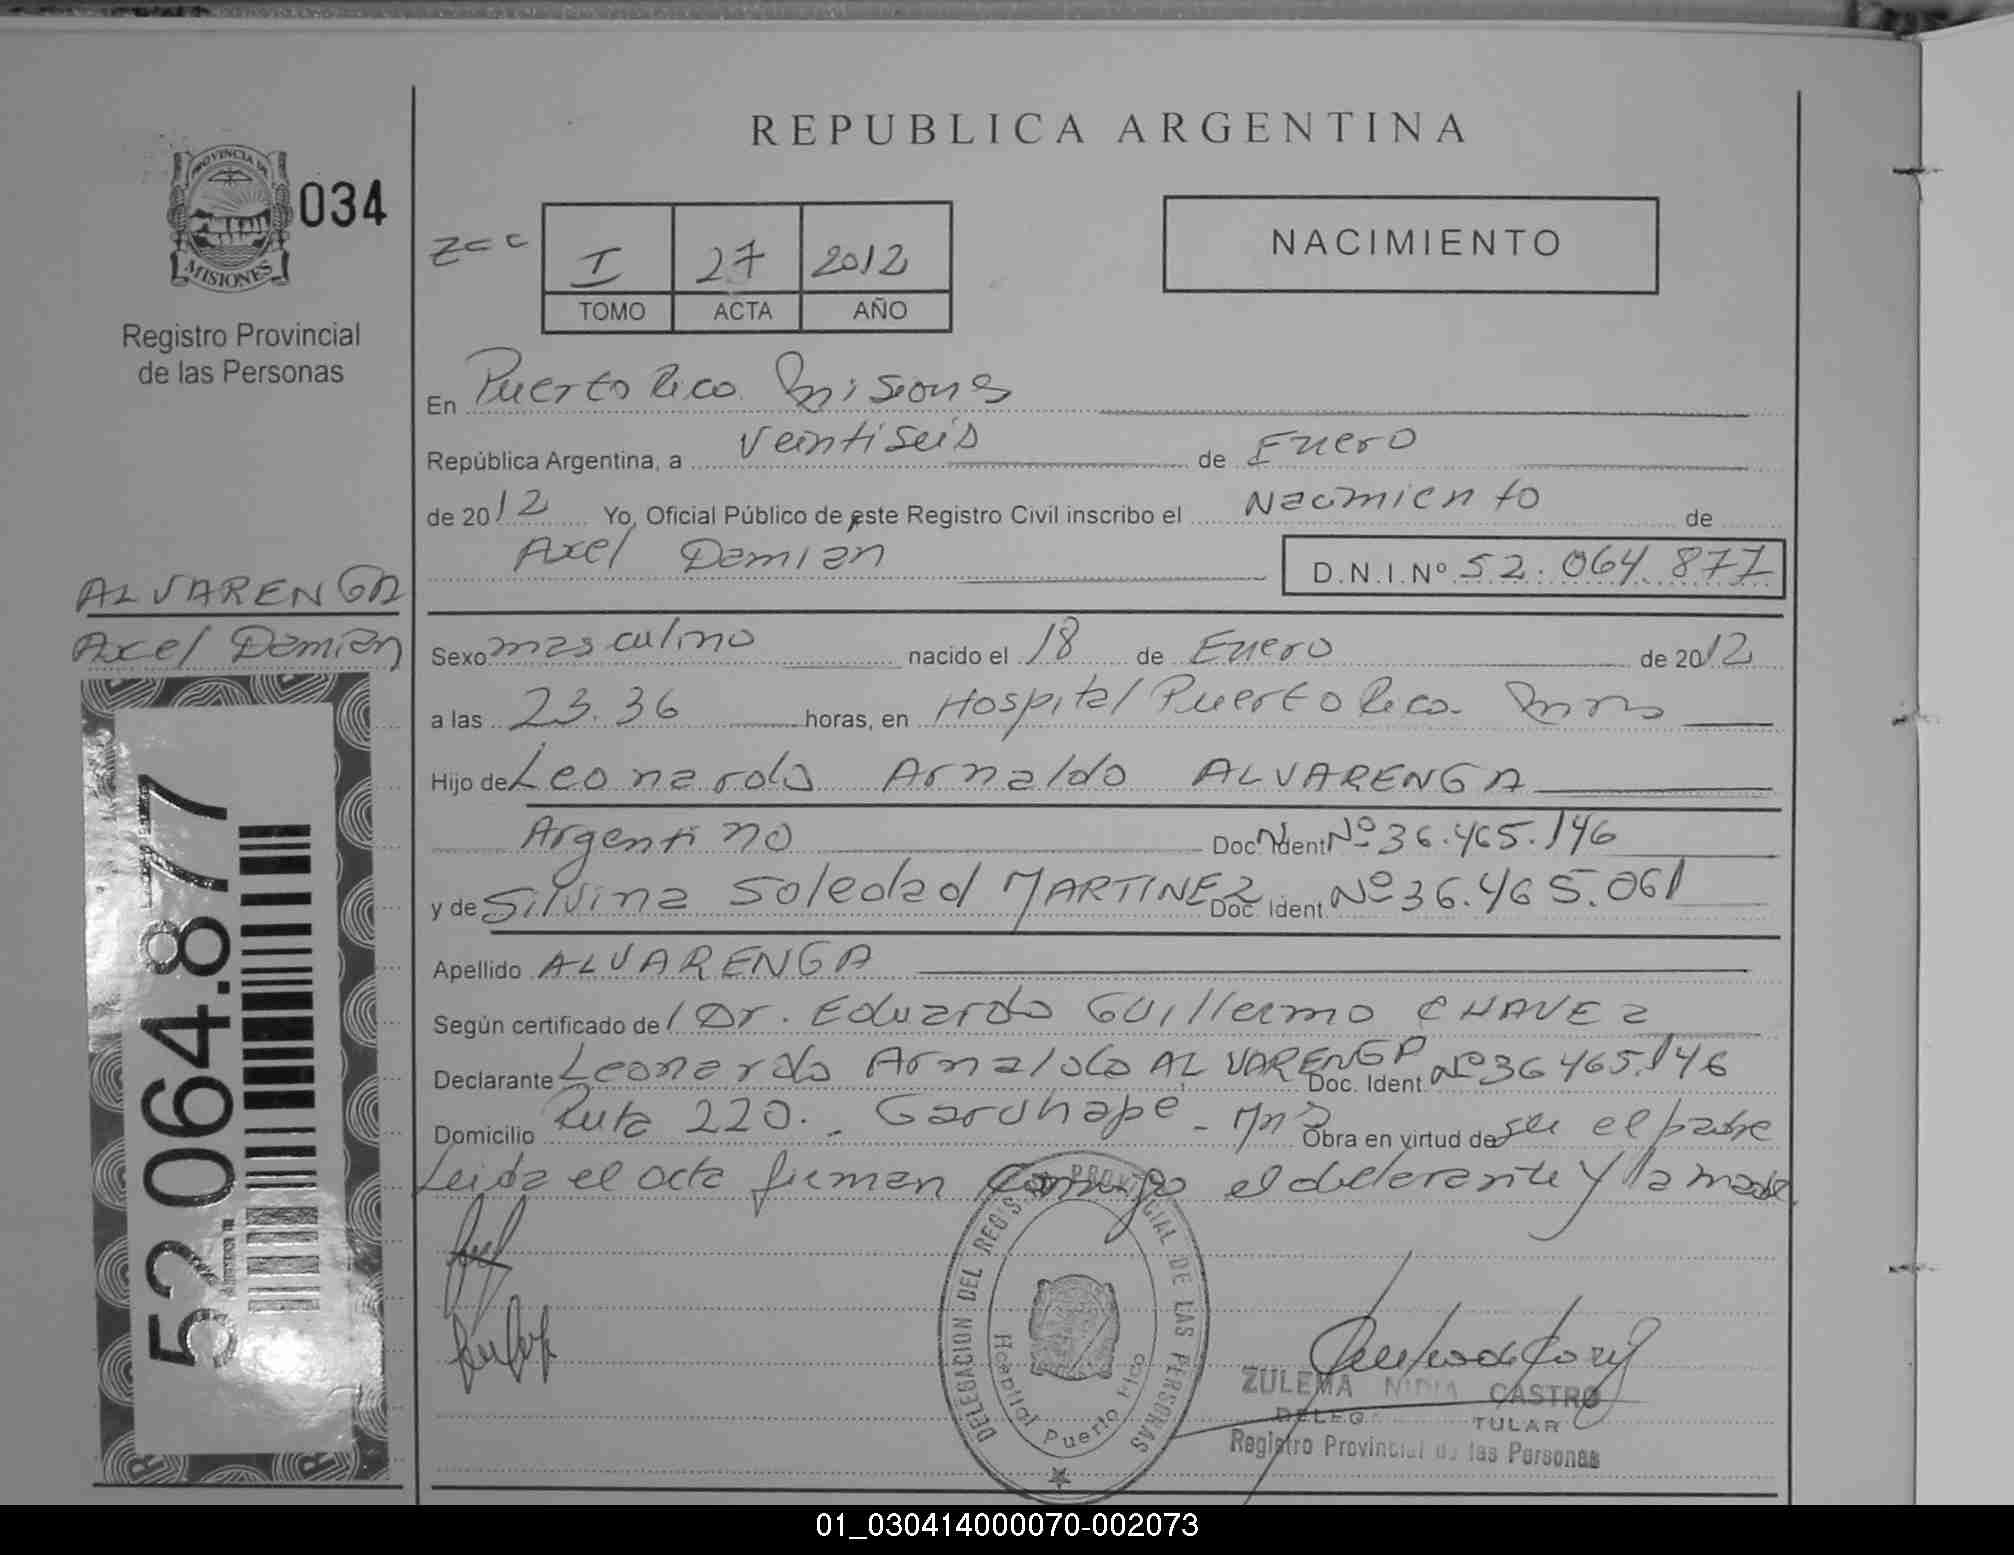 REPUBLICA ARGENTINA
PROVINCIA DE
MISIONES
034
Registro Provincial
de las Personas
zcc
I 27 2012
TOMO ACTA AÑO
NACIMIENTO
En Puerto Rico Misiones
República Argentina, a veintiseis de Enero
de 2012 Yo, Oficial Público de este Registro Civil inscribo el Nacimiento de
Axel Damian D.N.I.Nº 52.064.877
ALVARENGA
Axel Damian
52.064.877
Sexo masculino nacido el 18 de Enero de 2012
a las 23.36 horas, en Hospital Puerto Rico. Mnes
Hijo de Leonardo Arnaldo ALVARENGA
Argentino Doc. Ident. Nº 36.465.146
y de Silvina Soledad MARTINEZ Doc. Ident. Nº 36.465.061
Apellido ALVARENGA
Según certificado del Dr. Eduardo Guillermo CHAVEZ
Declarante Leonardo Arnaldo ALVARENGA Doc. Ident. Nº 36465.146
Domicilio Ruta 220. - Garuhape - Mns Obra en virtud de ser el padre
Leida el acta firman conmigo el declarante y la madre
DELEGACION DEL REGISTRO PROVINCIAL DE LAS PERSONAS
Hospital Puerto Rico
ZULEMA NIDIA CASTRO
DELEG TULAR
Registro Provincial de las Personas
01_030414000070-002073